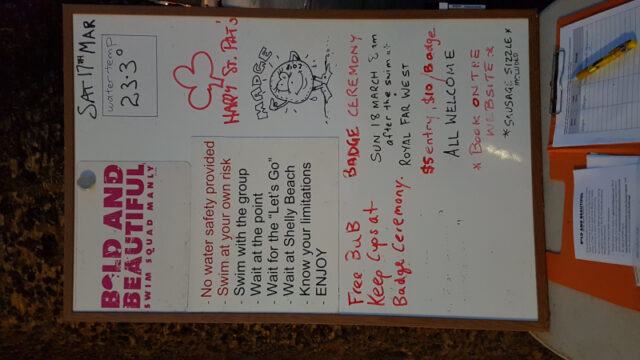 SAT 17TH MAR
water temp
23.3°
HAPPY ST. PATS'
MADGE
BOLD AND
BEAUTIFUL
SWIM SQUAD MANLY
- No water safety provided
- Swim at your own risk
- Swim with the group
- Wait at the point
- Wait for the "Let's Go"
- Wait at Shelly Beach
- Know your limitations
- ENJOY
BADGE CEREMONY
SUN 18 MARCH
after the swim at
ROYAL FAR WEST
$5 entry, $10/Badge
ALL WELCOME
* BOOK ON THE
WEBSITE *
* SAUSAGE SIZZLE *
INCLUDED
Free B&B
Keep Cups at
Badge Ceremony.
BOLD AND BEAUTIFUL